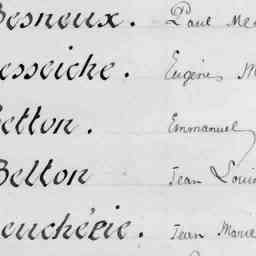 Besneux. Paul Me
esseiche. Eugène M
etton. Emmanuel
Belton Jean Loui
euchécie. Jean Marie